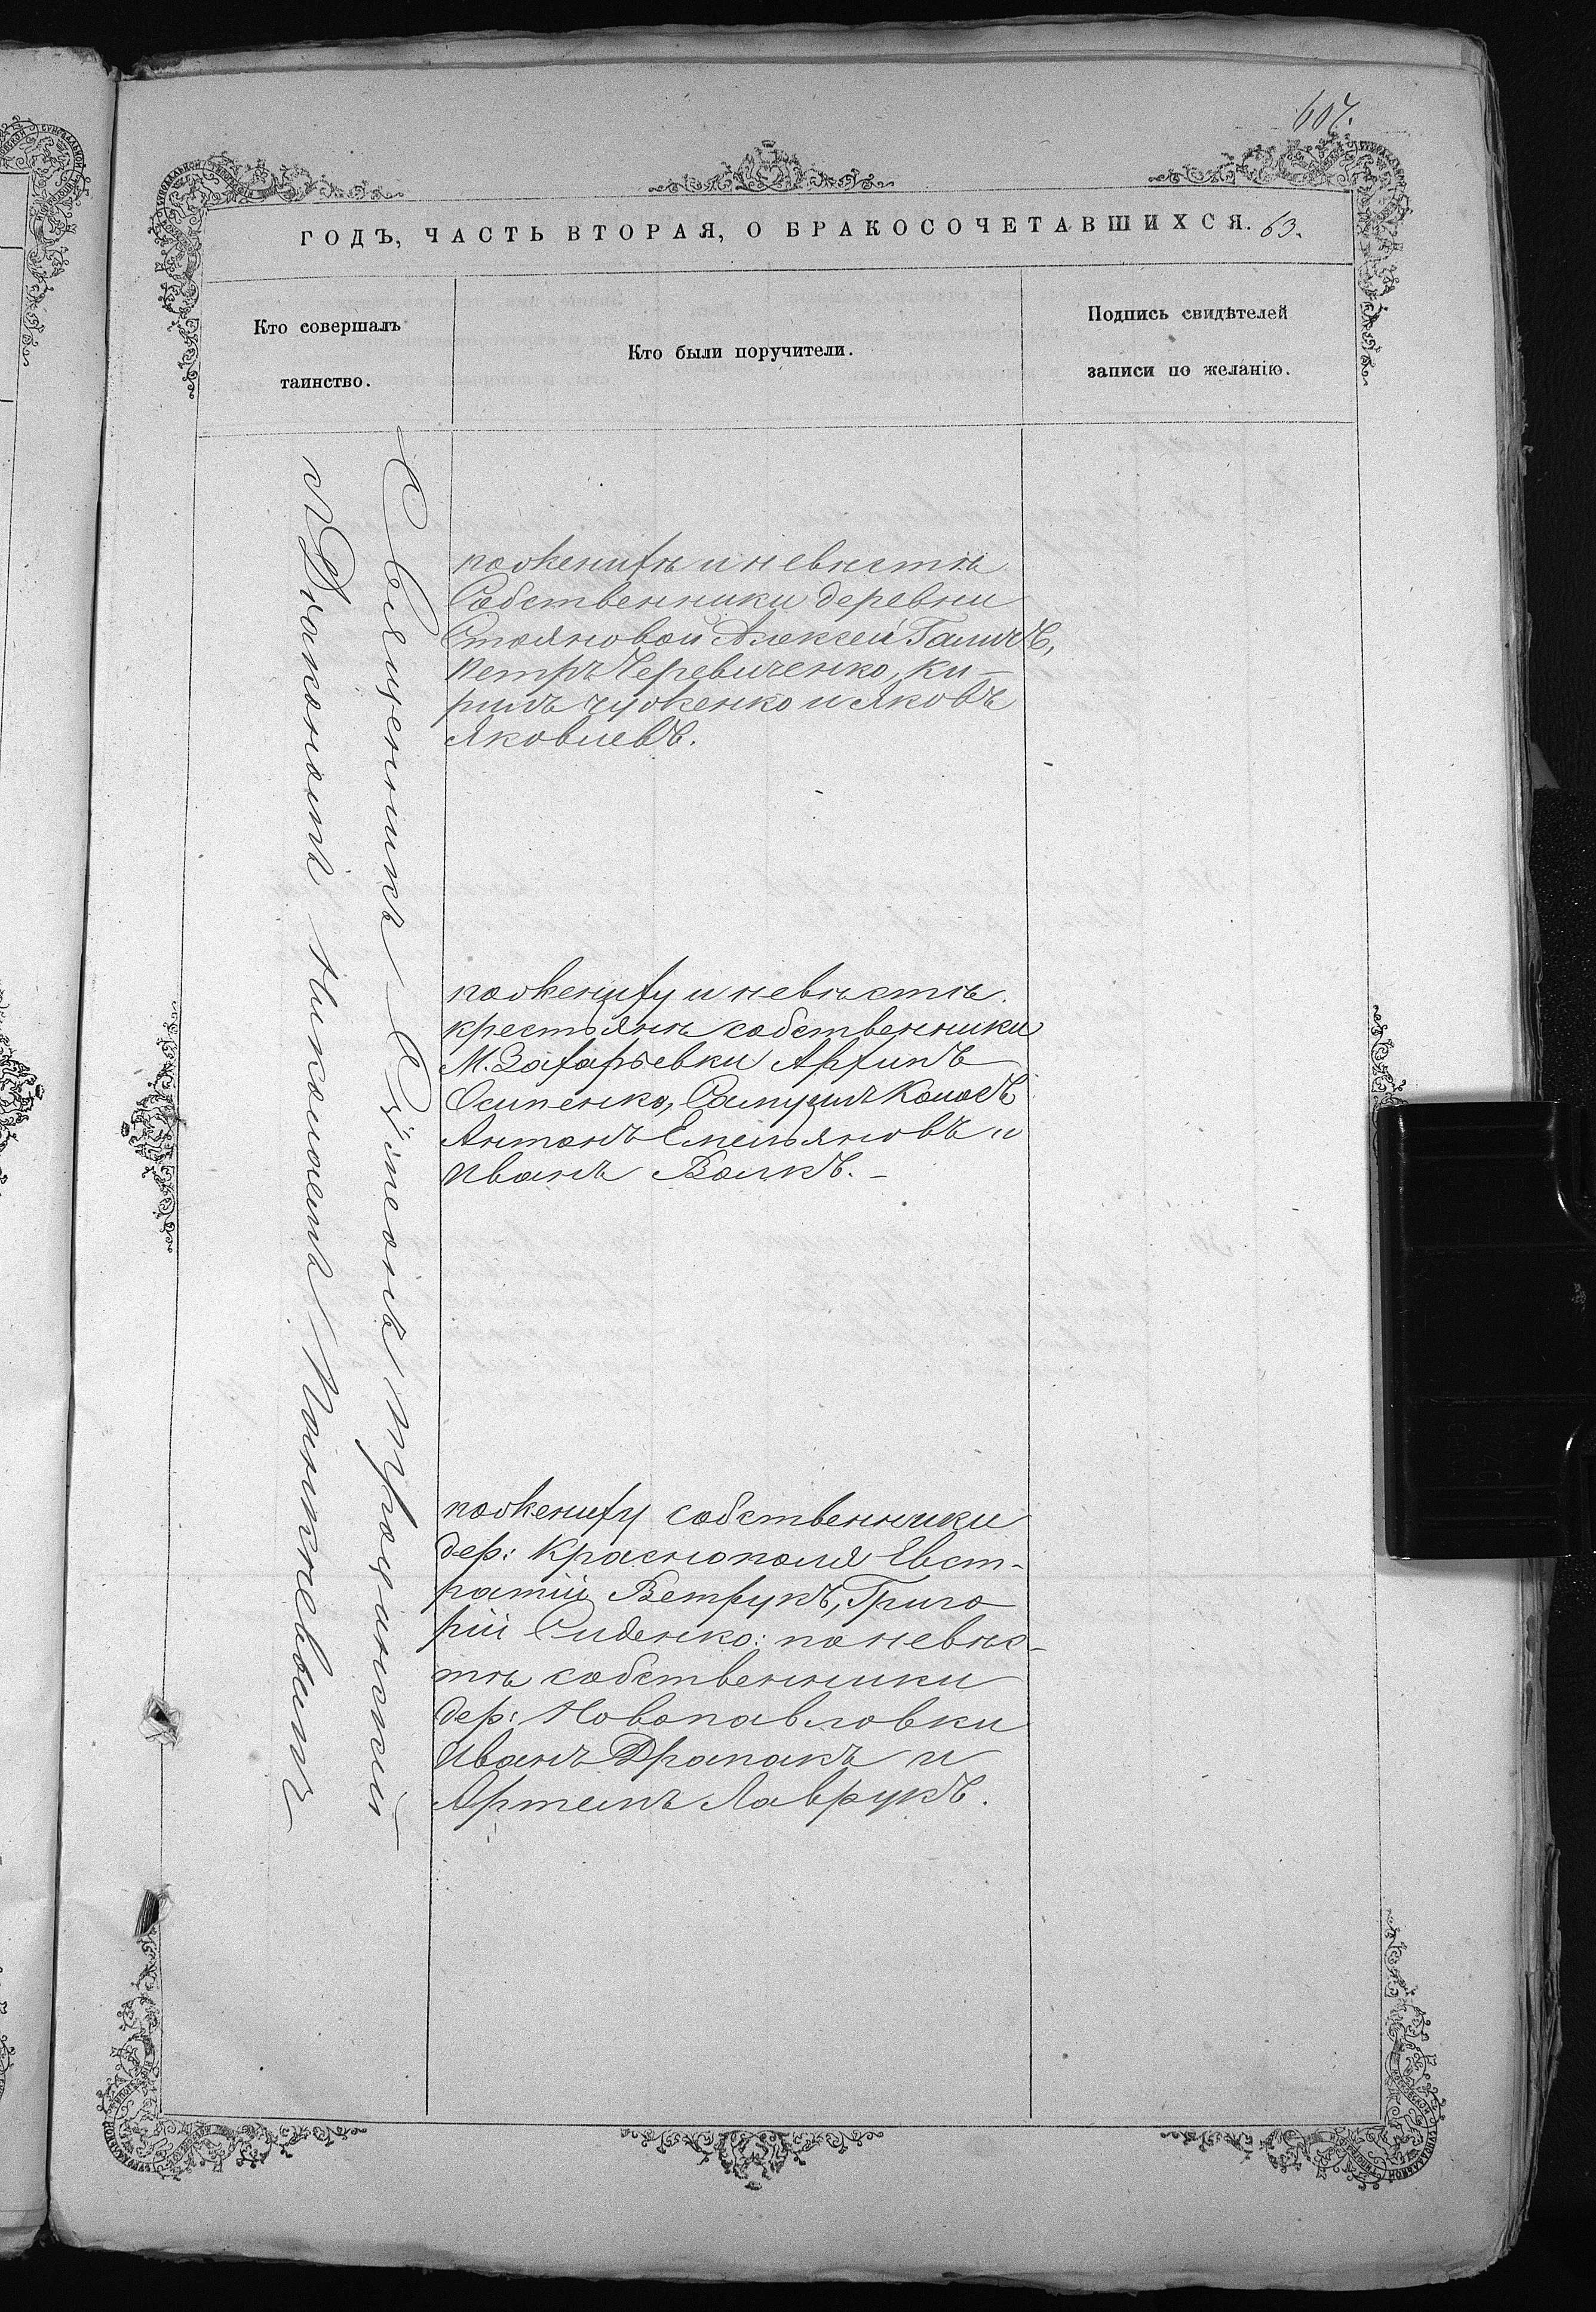 607.
ГОДЪ, ЧАСТЬ ВТОРАЯ, О БРАКОСОЧЕТАВШИХСЯ. 63.
Кто совершалъ
таинство.
Кто были поручители.
Подпись свидѣтелей
записи по желанію.
Священникъ Симеонъ Троцинскій
съ Діакономъ Пантелевичъ
по женихѣ и невѣстѣ
Собственники деревни
Стояновой Алексей Галичъ,
Петръ Черевиченко, Ки-
рилъ Чуженко и Яковъ
Яковлевъ.
по жениху и невѣстѣ
крестьяне собственники
М. Захарьевки Архипъ
Осипенко, Самуилъ Колосъ
Антонъ Емельяновъ и
Иванъ Волкъ.-
по жениху собственники
дер: Краснополя Евст-
ратій Ветрукъ, Григо
рій Сиденко: по невѣс-
тѣ собственники
дер: Новопавловки
Иванъ Драпакъ и
Артемъ Лаврукъ.